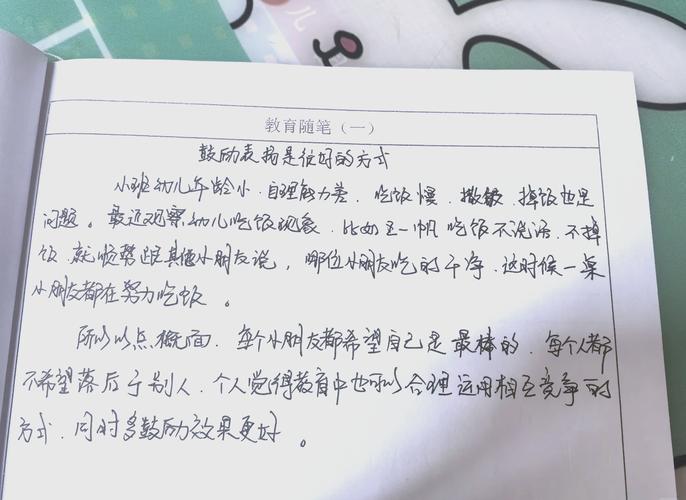 儿
教育随笔（一）
鼓励表扬是很好的方式
小班幼儿年龄小、自理能力差、吃饭慢、撒饭、掉饭也是
问题。最近观察幼儿吃饭现象、比如王一帆吃饭不说话、不掉
饭、就顺势跟其他小朋友说，哪位小朋友吃的干净、这时候一桌
小朋友都在努力吃饭。
所以以点概面、每个小朋友都希望自己是最棒的、每个人都
不希望落后于别人、个人觉得教育中也可以合理运用相互竞争的
方式、同时多鼓励效果更好。